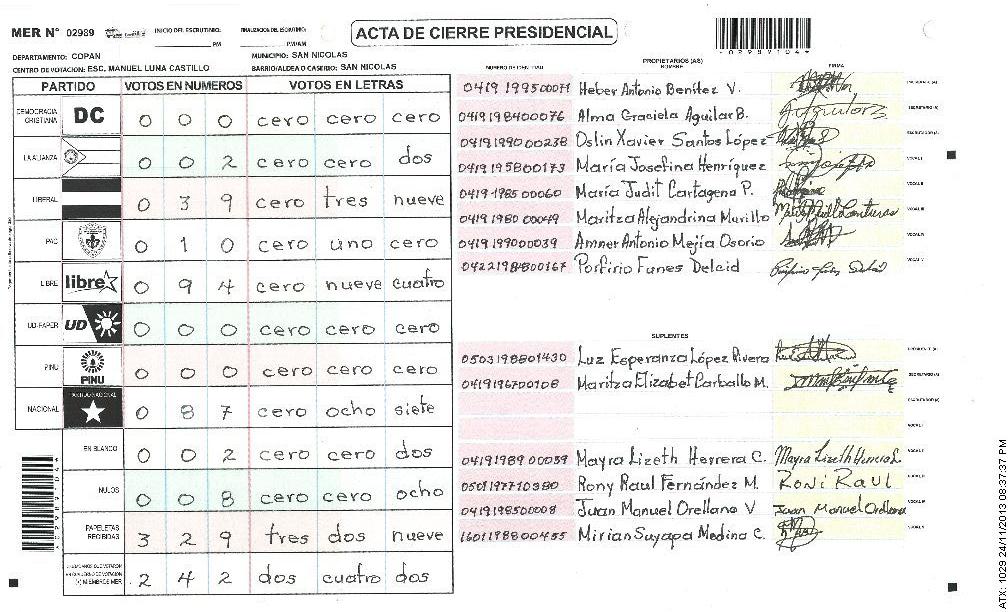 MER N° 02989
INICIO DEL ESCRUTINIO:
PM
FINALIZACION DEL ESCRUTINIO:
P.M/A.M
ACTA DE CIERRE PRESIDENCIAL
DEPARTAMENTO: COPAN
MUNICIPIO: SAN NICOLAS
CENTRO DE VOTACION: ESC. MANUEL LUNA CASTILLO
BARRIO/ALDEA O CASERIO: SAN NICOLAS
PARTIDO VOTOS EN NUMEROS VOTOS EN LETRAS
DEMOCRACIA CRISTIANA DC 0 0 0 cero cero cero
LA ALIANZA 0 0 2 cero cero dos
LIBERAL 0 3 9 cero tres nueve
PAC 0 1 0 cero uno cero
LIBRE libre 0 9 4 cero nueve cuatro
UD-FAPER UD 0 0 0 cero cero cero
PINU PINU 0 0 0 cero cero cero
NACIONAL PARTIDO NACIONAL 0 8 7 cero ocho siete
EN BLANCO 0 0 2 cero cero dos
NULOS 0 0 8 cero cero ocho
PAPELETAS RECIBIDAS 3 2 9 tres dos nueve
CIUDADANOS QUE VOTARON EN CUADERNO DE VOTACION (+) MIEMBROS MER 2 4 2 dos cuatro dos
PROPIETARIOS (AS)
NUMERO DE IDENTIDAD NOMBRE FIRMA
0419 199500071 Heber Antonio Benítez V.
0419198400076 Alma Graciela Aguilar B.
0419199000238 Oslin Xavier Santos López
0419195800173 María Josefina Henríquez
0419198500060 María Judit Cartagena P.
0419198000049 Maritza Alejandrina Murillo
0419199000039 Amner Antonio Mejía Osorio
0422198400167 Porfirio Funes Delcid
SUPLENTES
0503198801430 Luz Esperanza López Rivera
0419196700108 Maritza Elizabet Carballo M.
0419198900059 Mayra Lizeth Herrera C. Mayra Lizeth Herrera C.
0501197710380 Rony Raul Fernández M. Roni Raul
0419198500008 Juan Manuel Orellana V Juan Manuel Orellana
1601198800455 Mirian Suyapa Medina C.
ATX: 1029 24/11/2013 08:37:37 PM